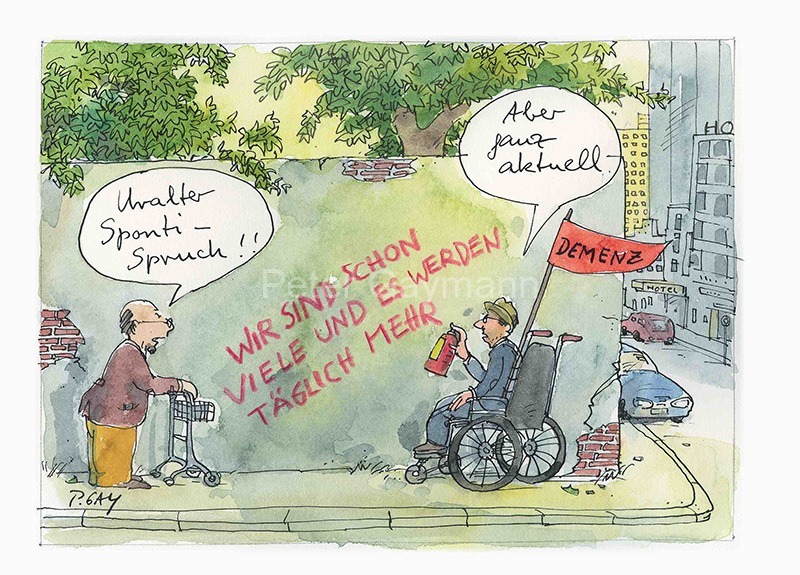 Uralter
Sponti-
Spruch!!
Aber
ganz
aktuell.
WIR SIND SCHON
VIELE UND ES WERDEN
TÄGLICH MEHR
DEMENZ
HO
HOTEL
Peter Gaymann
P. GAY